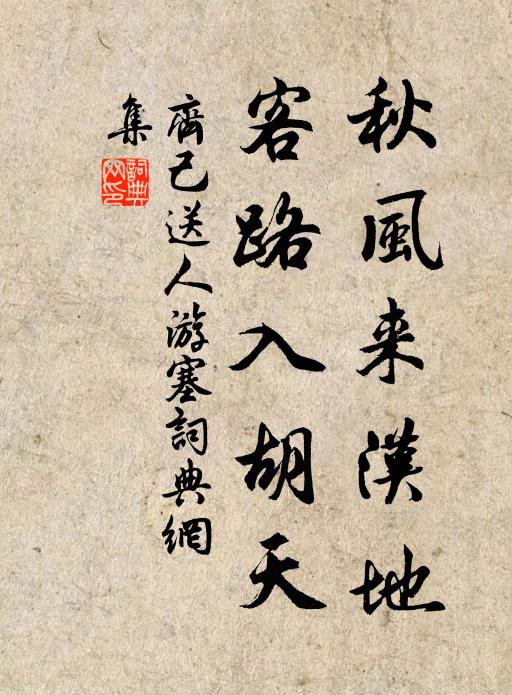 秋風来漢地
客路入胡天
齊己送人游塞詞典網
集
詞典網印